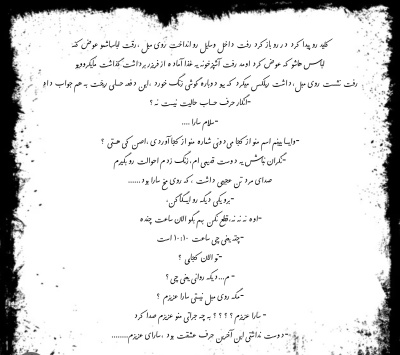 کلید رو پیدا کرد در رو باز کرد رفت داخل وسایل رو انداخت روی مبل ,رفت لباساشو عوض کنه
لباسش هاشو که عوض کرد اومد رفت آشپزخونه یه غذا آماده از فریزر برداشت گذاشت مایکروویو
رفت نشست روی مبل,داشت ریلکس میکرد که یهو دوباره گوشی زنگ خورد ,این دفعه حسابی ریخت به هم جواب داد
-انگار حرف حساب حالیت نیست نه ؟
-سلام سارا ....
-وایسا ببینم اسم منو از کجا می دونی شماره منو از کجا آوردی ,اصن کی هستی ؟
-نگران نباش یه دوست قدیمی ام,زنگ زدم احوالت رو بگیرم
صدای مرد تن عجیبی داشت , که روی مخ سارا بود......
-برو یکی دیگه رو ایسگا کن.
-اوه نه نه نه,قطع نکن بهم بگو الان ساعت چنده
-چند یعنی چی ساعت ۱۰:۱۰ است
-تو الان کجایی ؟
- م...دیگه روانی یعنی چی ؟
-مگه روی مبل نیستی سارا عزیزم ؟
- سارا عزیزم ؟ ؟ ؟ ؟ به چه جراتی منو عزیزم صدا کرد
-دوست نداشتی این آخرین حرف عشقت بود ,سارای عزیزم.........